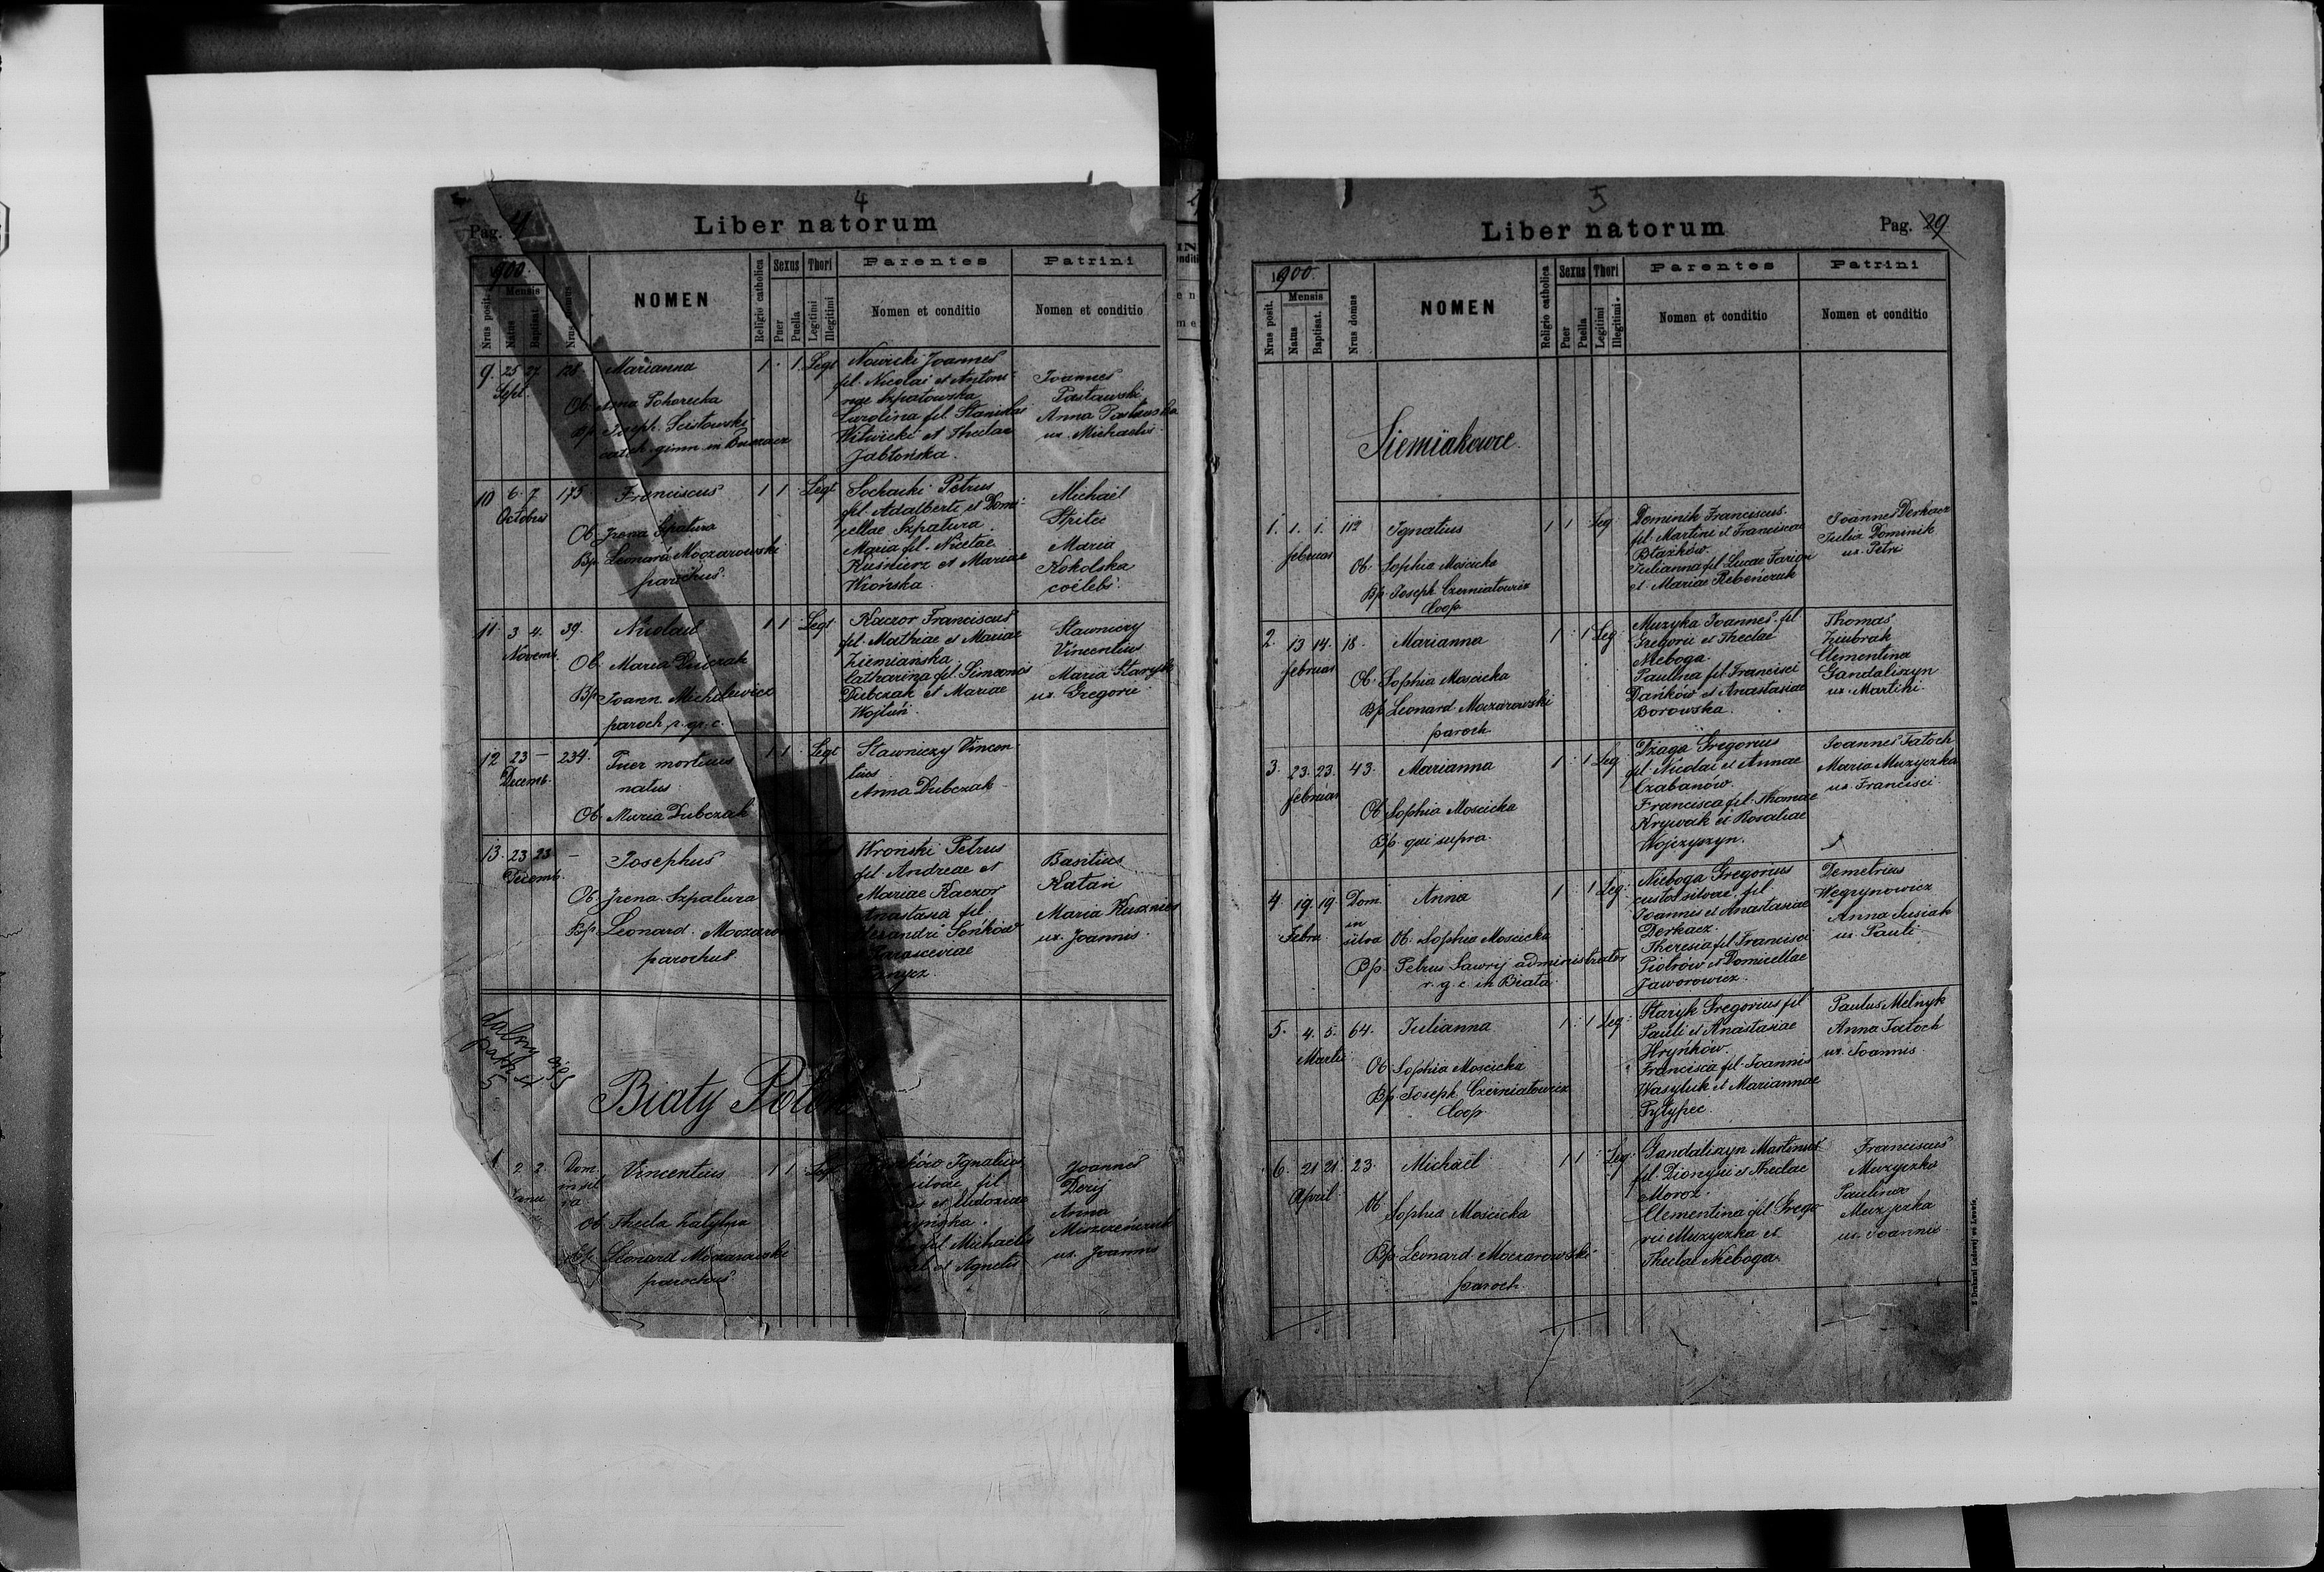 4
Pag. 4
Liber natorum
1900.
Nrus posit.
Mensis
Natus
Baptisat.
Nrus domus
NOMEN
Religio catholica
Sexus
Puer
Puella
Thori
Legitimi
Illegitimi
Parentes
Nomen et conditio
Patrini
Nomen et conditio
9. 25 27 128 Marianna 1 . 1. Legt
Sept.
Ob. Anna Pohorecka
Bp. Joseph
catech. gimn. in Buczacz
Nowicki Joannes
fil. Nicolai et Antoni-
nae Szpatowska
Carolina fil. Stanislai
Witwicki et Theclae
Jabłońska.
Joannes
Pastawski
Anna Pastawska
ux. Michaelis.
10 6. 7 175. Franciscus 1 1 Legt
October
Ob. Irena Szpatura
Bp. Leonard Moczarowski
parochus.
Sochacki Petrus
fil. Adalberti et Domi-
cellae Szpatura.
Maria fil. Nicetae
Kuśnierz et Mariae
Wrońska.
Michael
Maria
Kokolska
coelebs.
11. 3 4. 39. Nicolaus 1 1 Legt
Novemb.
Ob. Maria Dubczak
Bp. Joann. Michalewicz
paroch. r. gr. c.
Kaczor Franciscus
fil. Mathiae et Mariae
Ziemiańska
Catharina fil. Simeonis
Dubczak et Mariae
Wojtuń.
Sławniczy
Vincentius
Maria Staryk
ux. Gregorii.
12 23 — 234. Puer mortuus 1 1 Legt
Decemb. natus.
Ob. Maria Dubczak
Sławniczy Vincen
tius
Anna Dubczak
13. 23 23 — Josephus
Decemb.
Ob. Irena Szpatura
Bp. Leonard Moczarow
parochus
Wronski Petrus
fil. Andreae et
Mariae Kaczor
Anastasia fil.
Alexandri Seńków
Parasceviae
Basilius
Katan
Maria Kusznier
ux. Joannis.
dalszy ciąg
patrz st
5
Biały Potok
1 2 2. Dom. Vincentius 1 1 Legt
Janu in sil
va
Ob. Thecla
Bp. Leonard Moczarowski
parochus
Ignatius
silvae, fil.
et Eudoxiae
fil. Michaelis
et Agnetis
Joannes
Derij
Anna
Miszczeńczuk
ux. Joannis
5
Liber natorum
Pag. 29
1900.
Nrus posit.
Mensis
Natus
Baptisat.
Nrus domus
NOMEN
Religio catholica
Sexus
Puer
Puella
Thori
Legitimi
Illegitimi
Parentes
Nomen et conditio
Patrini
Nomen et conditio
Siemiakowce.
1. 1. 1. 112 Ignatius 1 1 Leg
februar
Ob. Sophia Moscicka
Bp. Joseph Czerniatowicz
Coop.
Dominik Franciscus.
fil. Martini et Franciscae
Błażków.
Julianna fil. Lucae Farion
et Mariae Rebeńczuk
Joannes Derkacz
Julia Dominik
ux. Petri
2. 13 14. 18. Marianna 1 . 1 Leg
februar
Ob. Sophia Moscicka
Bp. Leonard Moczarowski
paroch.
Muzyka Joannes. fil.
Gregorii et Theclae
Nieboga.
Paulina fil. Francisci
Dańków et Anastasiae
Borowska.
Thomas
Ziubrak
Clementina
Gandaliszyn
ux. Martini.
3. 23. 23. 43. Marianna 1 : 1 Leg
februar
Ob. Sophia Moscicka
Bp. qui supra.
Dżaga Gregorius
fil. Nicolai et Annae
Czabanów.
Francisca fil. Thomae
Krywak et Rosaliae
Wojczyszyn.
Joannes Tatoch
Maria Muzyczka
ux. Francisci.
4. 19. 19. Dom. Anna 1 : 1 Leg.
Febru. in
silva Ob. Sophia Moscicka
Bp. Petrus Ławryj administrator
r. g. c. in Biała.
Nieboga Gregorius
custos silvae, fil.
Joannis et Anastasiae
Derkacz.
Theresia fil. Francisci
Piotrów et Domicellae
Jaworowicz.
Demetrius
Węgrynowicz
Anna Susiak
ux. Pauli
5. 4. 5. 64. Julianna 1 : 1 Leg.
Martii
Ob. Sophia Moscicka
Bp. Joseph Czerniatowicz
Coop.
Staryk Gregorius fil
Pauli et Anastasiae
Hryńków.
Francisca fil. Joannis
Wasyluk et Mariannae
Pytypec.
Paulus Melnyk
Anna Tatoch
ux. Joannis.
6. 21 21. 23. Michael 1 1 Leg.
April
Ob. Sophia Moscicka
Bp. Leonard Moczarowski
paroch.
Gandaliszyn Martinus
fil. Dionysii et Theclae
Moroz.
Clementina fil. Grego
rii Muzyczka et
Theclae Nieboga.
Franciscus
Muzyczka
Paulina
Muzyczka
ux. Joannis.
Z Drukarni Ludowej we Lwowie.